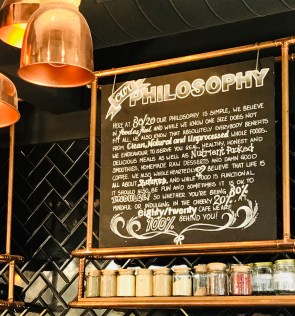 OUR
PHILOSOPHY
HERE AT 80/20 OUR PHILOSOPHY IS SIMPLE, WE BELIEVE
IN food as fuel AND WHILE WE KNOW ONE SIZE DOES NOT
FIT ALL, WE ALSO KNOW THAT ABSOLUTELY EVERYBODY BENEFITS
FROM Clean, Natural and Unprocessed WHOLE FOODS.
WE ENDEAVOUR TO SERVE YOU REAL, HEALTHY, HONEST AND
DELICIOUS MEALS AS WELL AS Nutrient Packed
SMOOTHIES, HOMEMADE RAW DESSERTS AND DAMN GOOD
COFFEE. WE ALSO WHOLEHEARTEDLY BELIEVE THAT LIFE IS
ALL ABOUT balance, AND WHILE FOOD IS FUNCTIONAL
IT SHOULD ALSO BE FUN AND SOMETIMES IT IS OK TO
INDULGE! SO WHETHER YOU'RE BEING 80%
MINDFUL OR INDULGING IN THE CHEEKY 20% AT
eighty/twenty CAFE WE ARE
100% BEHIND YOU!